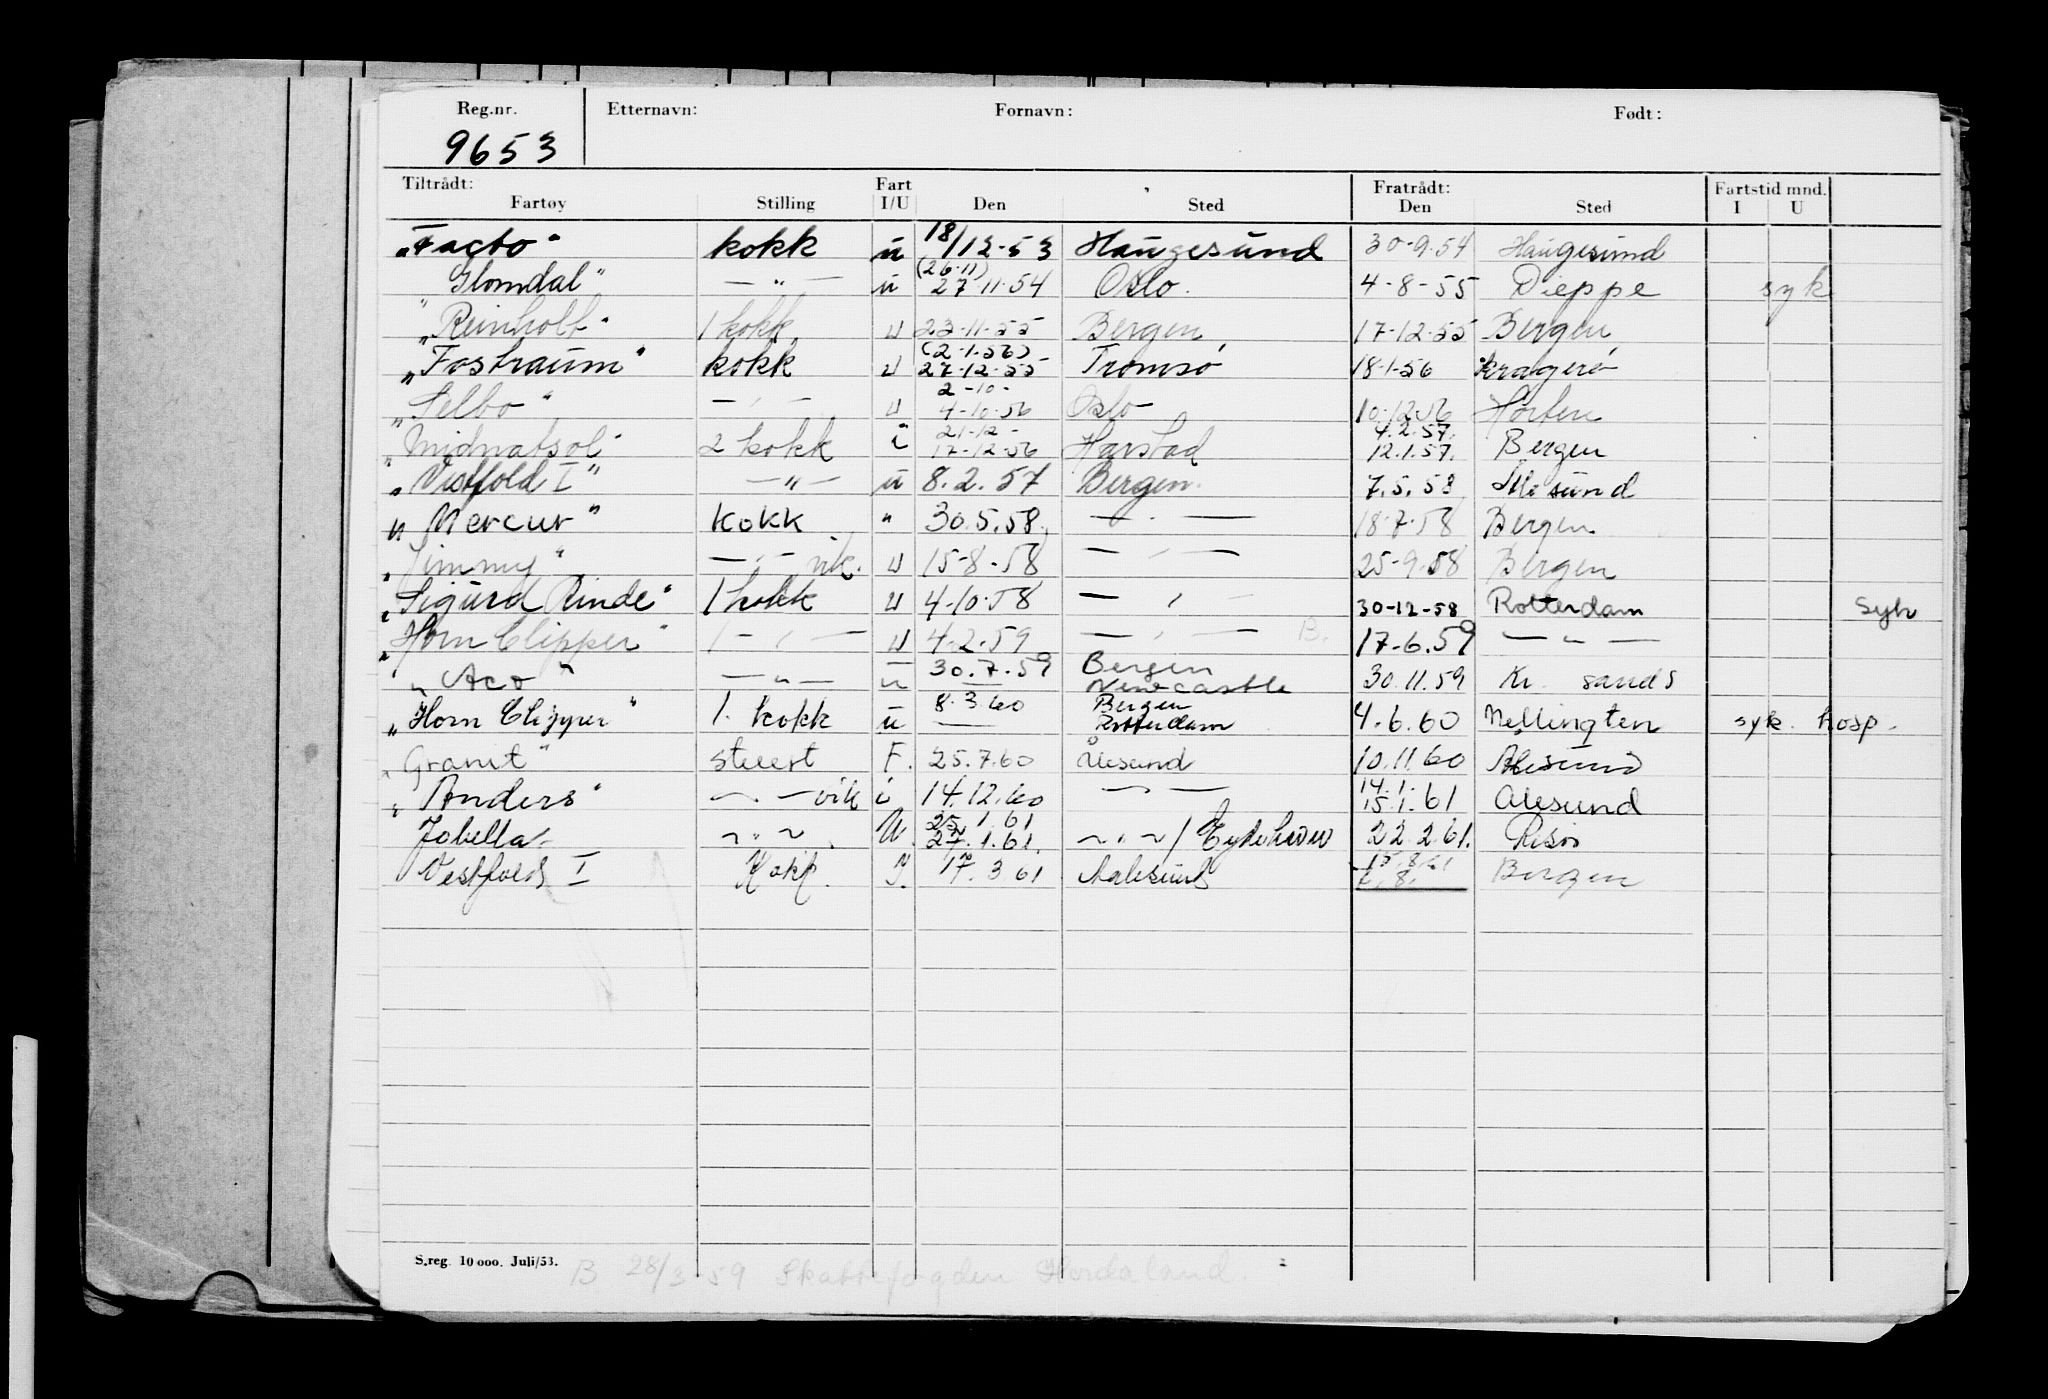 Reg.nr. Etternavn: Fornavn: Født:
9653
Tiltrådt: Fart Fratrådt: Fartstid mnd.
Fartøy Stilling I/U Den Sted Den Sted I U
"Facto" kokk u 18/12-53 Haugesund 30-9-54 Haugesund
(26-11)
Glomdal" — " — u 27-11-54 Oslo. 4-8-55 Dieppe syk
"Reinholt" 1 kokk u 23-11-55 Bergen 17-12-55 Bergen
(2-1.56)
"Fostraum" kokk u 27-12-55 Tromsø 18-1-56 Kragerø
2-10-
"Selbo" — " — u 4-10-56 Oslo 10-12.56 Horten
21-12- 4.2.57.
"Midnatsol" 2 kokk i 17-12-56 Harstad 12.1.57. Bergen
"Vestfold I" — " — u 8.2.57 Bergen. 7.5.58 Ålesund
"Mercur" Kokk " 30.5.58. — " — 18-7-58 Bergen
"Jimmy" — " — vik. u 15-8-58 — " — 25-9-58 Bergen
"Sigurd Rinde" 1 kokk u 4-10-58 — " — 30-12-58 Rotterdam syk
"Horn Clipper" 1 — " — u 4-2-59 — " — B. 17-6.59 — " —
"Aco" — " — u 30.7.59 Bergen Newcastle 30.11.59 Kr. sands
"Horn Clipper" 1. kokk u 8.3.60 Bergen Rotterdam 4.6.60 syk. hosp.
"Granit" stuert F. 25.7.60 Ålesund 10.11.60 Ålesund
14.1.
"Anders" — " — vik i 14.12.60 — " — 15.1.61 Ålesund
25.1.61
— " — U. 27.1.61. — " — / Eydehavn 22.2.61. Risør
15.8.61
Vestfold I Kokk. I. 17.3 61 Aalesund 8. Bergen
S.reg. 10 000. Juli/53. B 28/3-59 Skattefogden Hordaland.